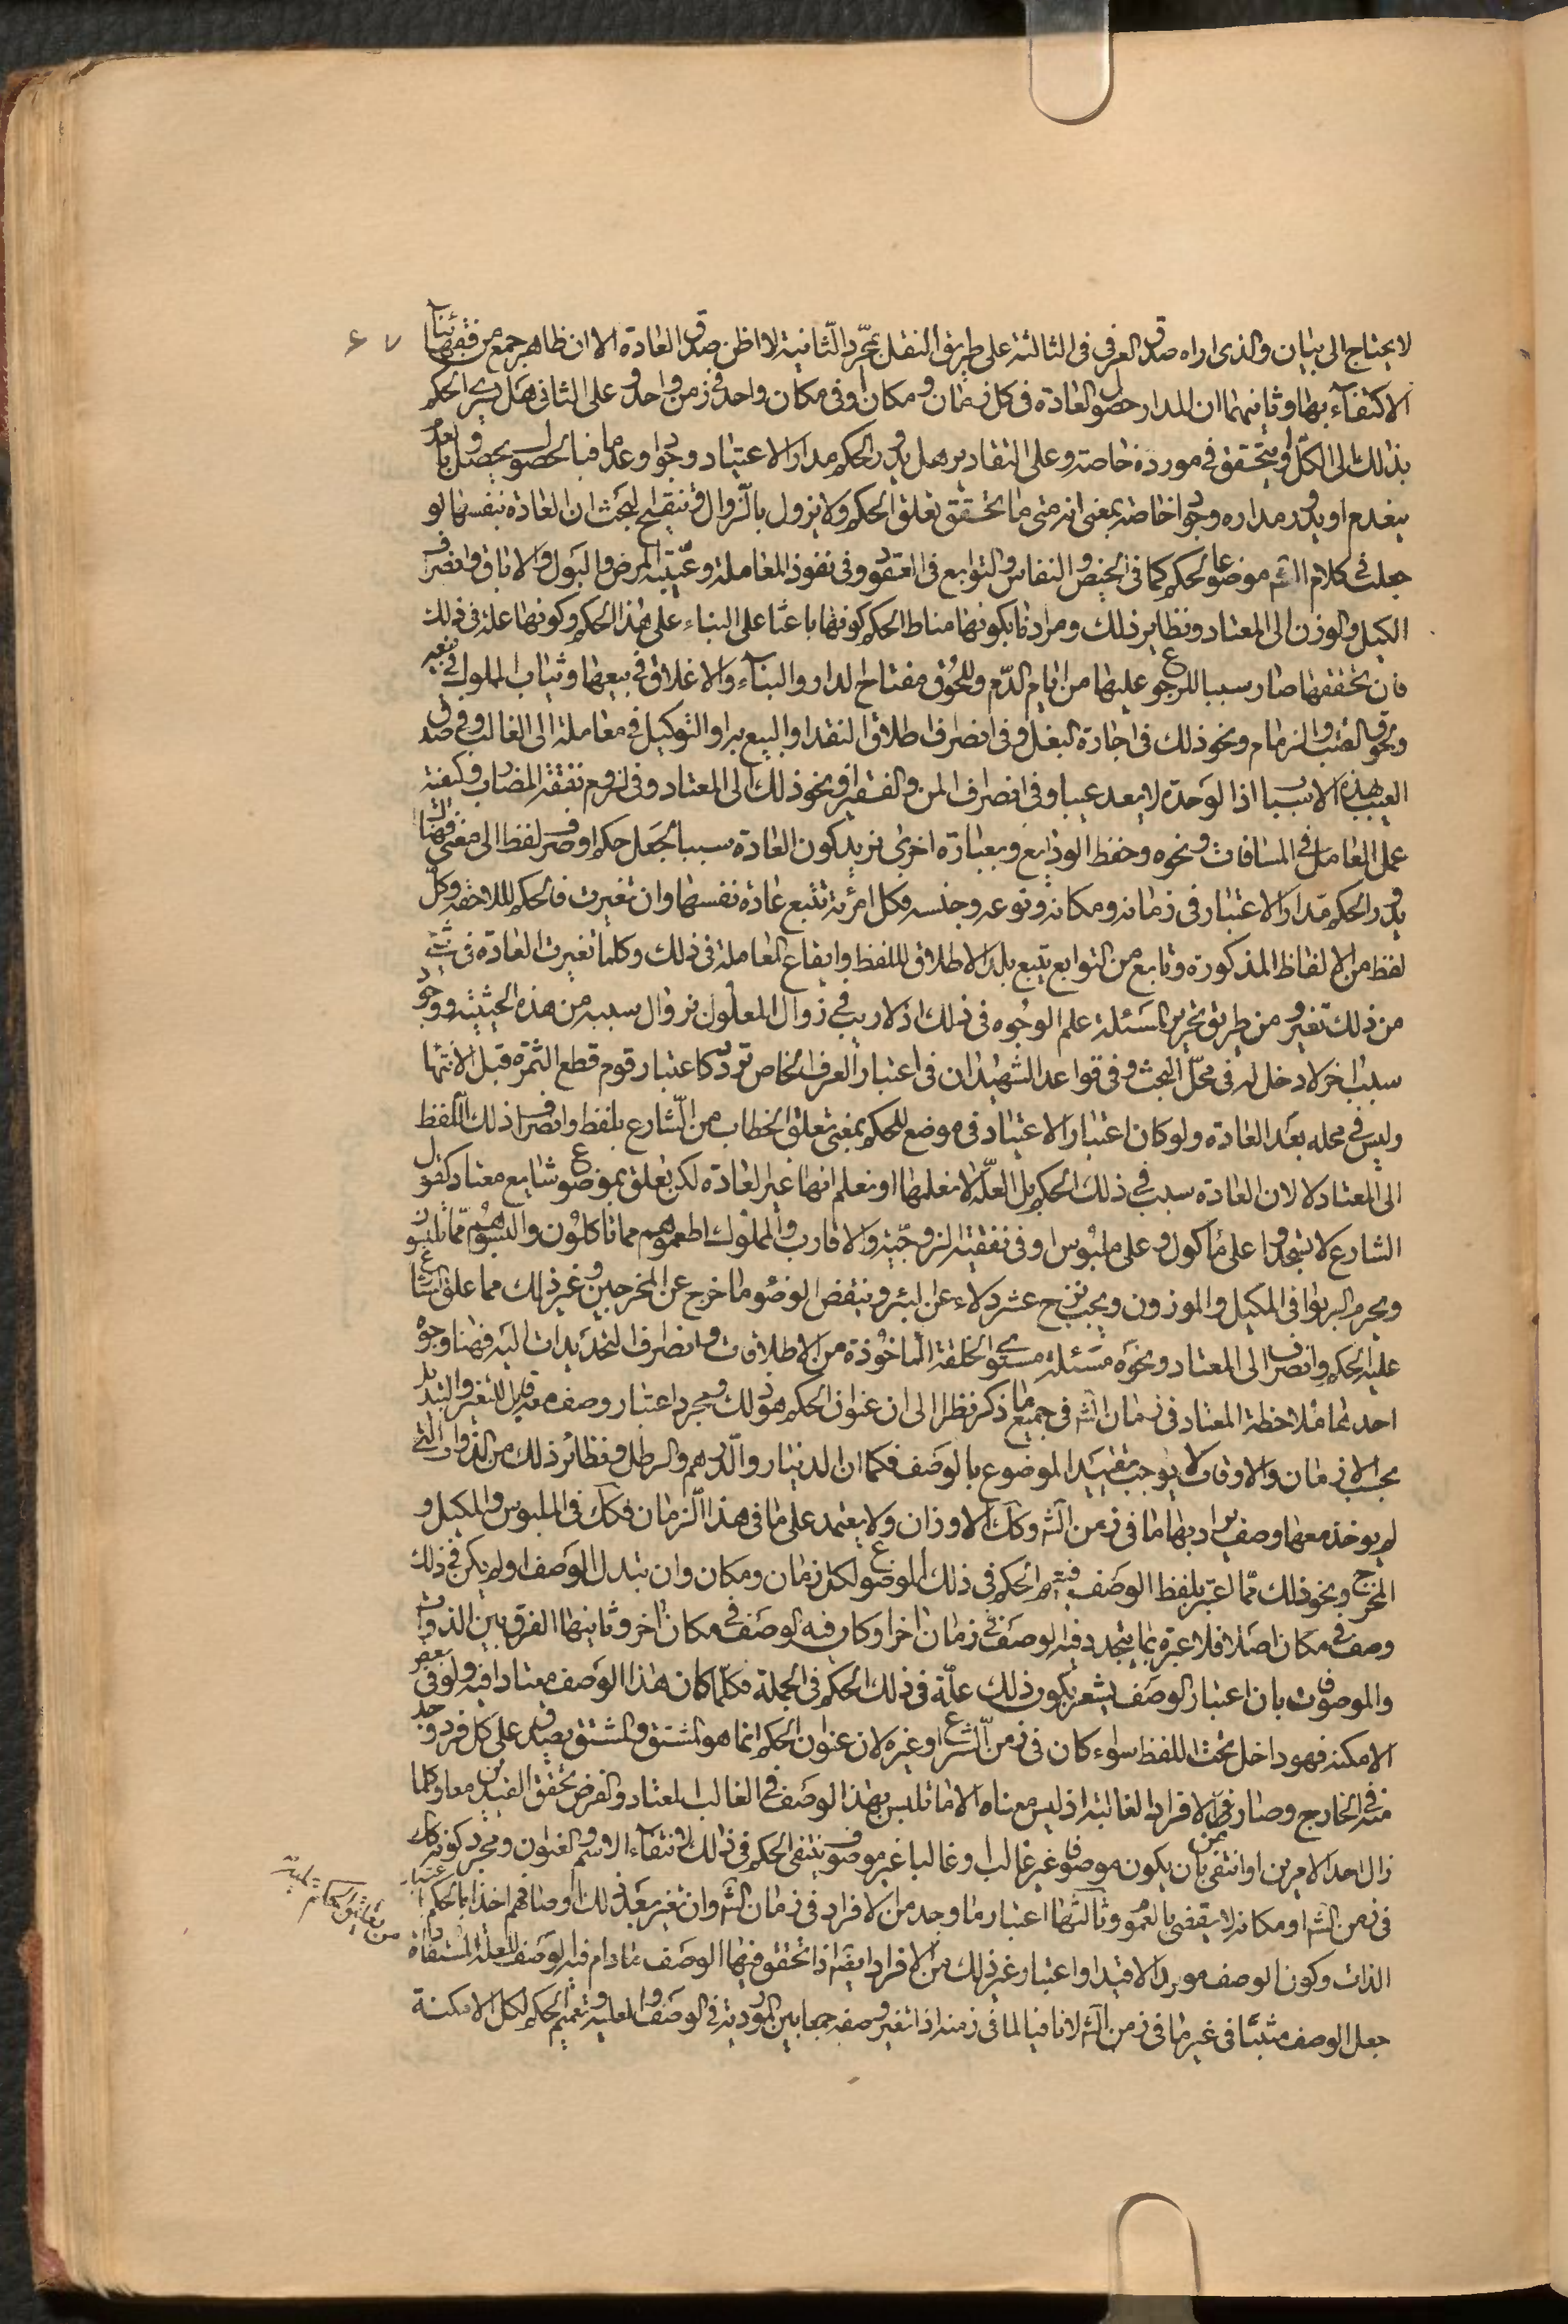 لا يحتاج الى بيان والذى اراه صدق العرفى فى الثالثة على طريق النقل بمجرّد الثانية لا اظن صدق العادة الا ان ظاهر جمع من فقهائنا
٦٧
الاكتفاء بها وثانيهما ان المدار حصول العادة فى كل زمان ومكان او فى مكان واحد فى زمن واحد وعلى الثانى هل يسرى الحكم
بذلك الى الكل او يتحقق فى مورده خاصة وعلى التقادير هل يدور الحكم مدار الاعتياد وجودا وعدما فبالحصول يحصل وبالعدم
ينعدم او يدور مداره وجودا خاصة بمعنى انه متى ما تحقق تعلق الحكم ولا يزول بالزوال فتنقيح البحث ان العادة نفسها لو
جعلت فى كلام الشه موضوعا لحكم كما فى الحيض والنفاس والتوابع فى العقود وفى نفوذ المعاملة وعيبية المرض والبول والاباق وانصراف
الكيل والوزن الى المعتاد ونظاير ذلك ومرادنا بكونها مناط الحكم كونها باعثا على البناء على هذا الحكم وكونها علة فى ذلك
فان تحققها صار سببا للرجوع عليها من ايام الدم وللحوق مفتاح الدار والبناء والاغلاق فى بيعها وثياب المملوك فى بيعه
ولحوق القتب والزمام ونحو ذلك فى اجارة البغل وفى انصراف اطلاق النقد او البيع به او التوكيل فى معاملة الى الغالب وفى صدق
العيب بهذه الاسباب اذ الوحدة لا يعد عيبا وفى انصراف المن والقفيز ونحو ذلك الى المعتاد وفى لزوم نفقة المضارب وكيفية
عمل العامل فى المسافات ونحوه وحفظ الودايع وبعبارة اخرى نريد كون العادة سببا لجعل حكم او صرف لفظ الى معنى فهناك
يدور الحكم مدار الاعتبار فى زمانه ومكانه ونوعه وجنسه فكل امرئة تتبع عادة نفسها وان تغيرت فالحكم للاحقة وكل
لفظ من الالفاظ المذكورة وتابع من التوابع يتبع بلد الاطلاق للفظ وايقاع المعاملة فى ذلك وكلما تغيرت العادة فى شئ
من ذلك تغير ومن طريق تحرير المسئلة علم الوجوه فى ذلك اذ لا ريب فى زوال المعلول بزوال سببه من هذه الحيثية ووجود
سبب اخر لا دخل له فى محل البحث وفى قواعد الشهيد ان فى اعتبار العرف الخاص تردد كاعتبار قوم قطع الثمرة قبل الانتهاء
وليس فى محله بعد العادة ولو كان اعتبار الاعتياد فى موضع للحكم بمعنى تعلق الخطاب من الشارع بلفظ وانصراف ذلك اللفظ
الى المعتاد لا لان العادة سبب فى ذلك الحكم بل العلة لا نعلمها او نعلم انها غير العادة لكن تعلق بموضوع شايع معتاد كقول
الشارع لا تسجدوا على مأكول وعلى ملبوس او فى نفقة الزوجية والاقارب والمملوك اطعموهم مما تاكلون والبسوهم مما تلبسون
ويحرم الربوا فى المكيل والموزون ويجب نزح عشر دلاء عن البئر وينقض الوضوء ما خرج عن المخرجين وغير ذلك مما علق الشارع
عليه الحكم وانصرف الى المعتاد ونحوه مسئلة مستوى الخلقة المأخوذة من الاطلاقات وانصراف التحديدات اليه فهنا وجوه
احدها ملاحظة المعتاد فى زمان الشه فى جميع ما ذكر نظرا الى ان عنوان الحكم هو ذلك ومجرد اعتبار وصف معه قابل للتغير والتبديل
بحسب الازمان والاوقات لا يوجب تقييد الموضوع بالوصف فكما ان الدينار والدرهم والرطل ونظائر ذلك من الذوات التى
لم يوخذ معها وصف يراد بها ما فى زمن الشه وكك الاوزان ولا يعتمد على ما فى هذا الزمان فكك فى الملبوس والمكيل و
المخرج ونحو ذلك مما اعتبر بلفظ الوصف فيعم الحكم فى ذلك الموضوع لكل زمان ومكان وان تبدل الوصف او لم يكن فى ذلك
وصف فى مكان اصلا فلا عبرة بما يتجدد فيه الوصف فى زمان اخر او كان فيه الوصف فى مكان اخر وثانيها الفرق بين الذوات
والموصوف بان اعتبار الوصف يشعر بكون ذلك علة فى ذلك الحكم فى الجملة فكلما كان هذا الوصف معتادا فيه ولو فى بعض
الامكنة فهو داخل تحت اللفظ سواء كان فى زمن الشرع او غيره لان عنوان الحكم انما هو المشتق والمشتق يصدق على كل فرد وجد
منه فى الخارج وصار من الافراد الغالبة اذ ليس معناه الا ما تلبس بهذا الوصف فى الغالب المعتاد والفرض تحقق القيدين معا وكلما
زال احد الامرين او انتفى بان يكون موصوفا غير غالب او غالبا غير موصوف ينتفى الحكم فى ذلك لانتفاء الاسم والعنوان ومجرد كونه كك
فى زمن الشه او مكانه لا يقضى بالعموم وثالثها اعتبار ما وجد من الافراد فى زمان الشه وان تغير بعد ذلك اوصافهم اخذا بالحكم باعتبار
الذات وكون الوصف موردا لا قيدا واعتبار غير ذلك من الافراد ايضا اذا تحقق فيها الوصف ما دام فيه الوصف للعلة المستفادة
جعل الوصف مثبتا فى غير ما فى زمن الشه لا نافيا لما فى زمنه اذا تغير وصفه جمعا بين الموردية فى الوصف والعلية وتعميم الحكم لكل الامكنة